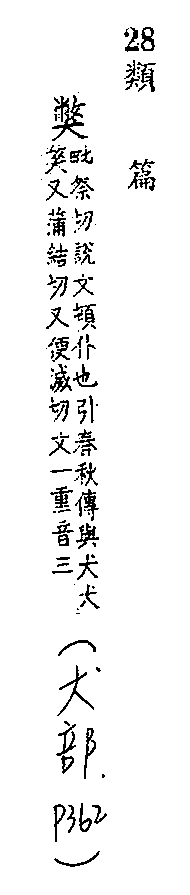 28 類篇
獘
毗祭切說文頓仆也引春秋傳與犬犬
獘又蒲結切又便滅切文一重音三
（犬部. P362）